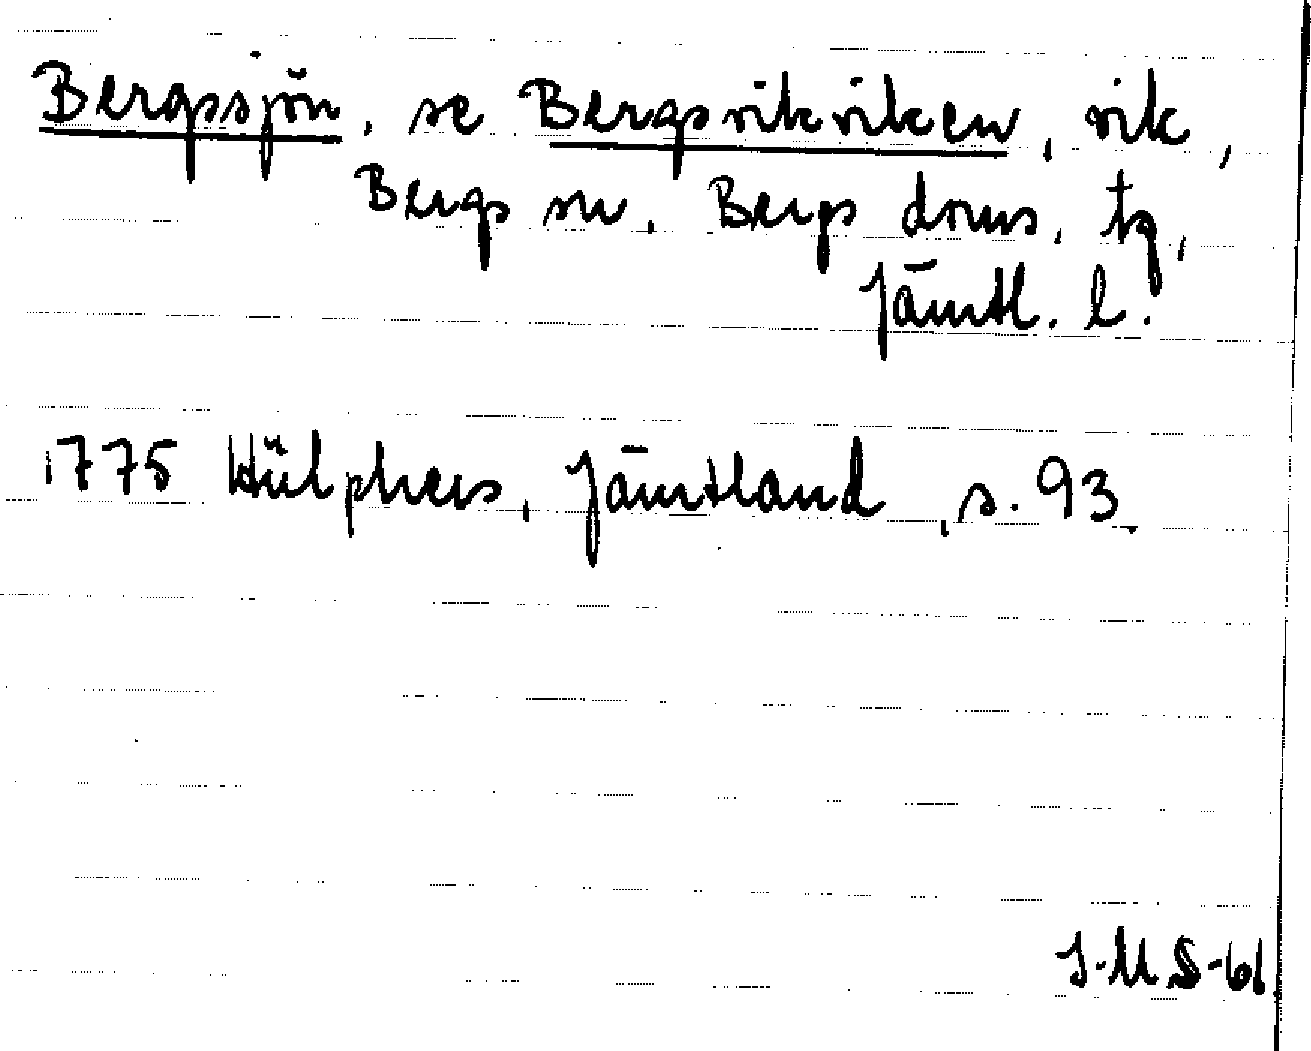 Bergssjön, se Bergsvikviken, vik,
Bergs sn. Bergs doms. tg,
Jämtl. l.
1775 Hülphers, Jämtland, s. 93.
J-M S-61